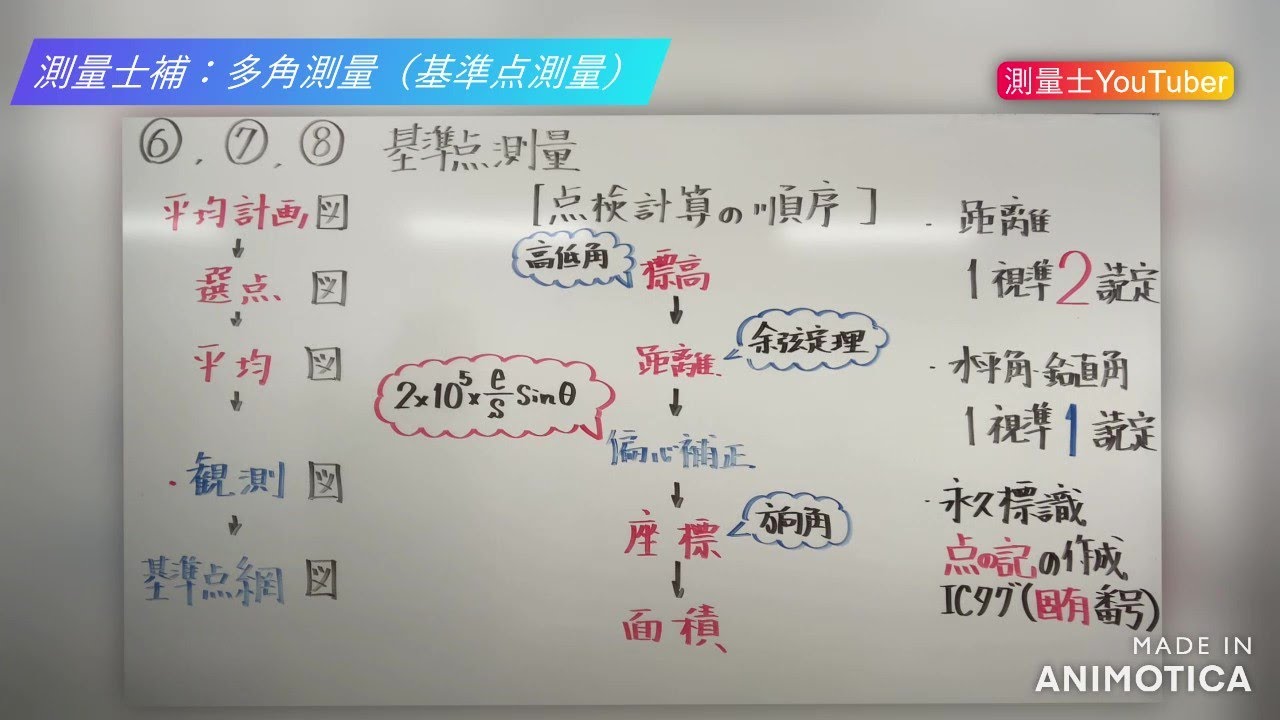 測量士補：多角測量（基準点測量）
測量士YouTuber
⑥, ⑦, ⑧ 基準点測量
平均計画図
↓
選点図
↓
平均図
↓
・観測図
↓
基準点網図
[点検計算の順序]
高低角
標高
↓
余弦定理
距離
↓
2×10⁵×e/S sinθ
偏心補正
↓
方向角
座標
↓
面積
・距離
1視準2読定
・水平角・鉛直角
1視準1読定
・永久標識
点の記の作成
ICタグ(固有番号)
MADE IN
ANIMOTICA